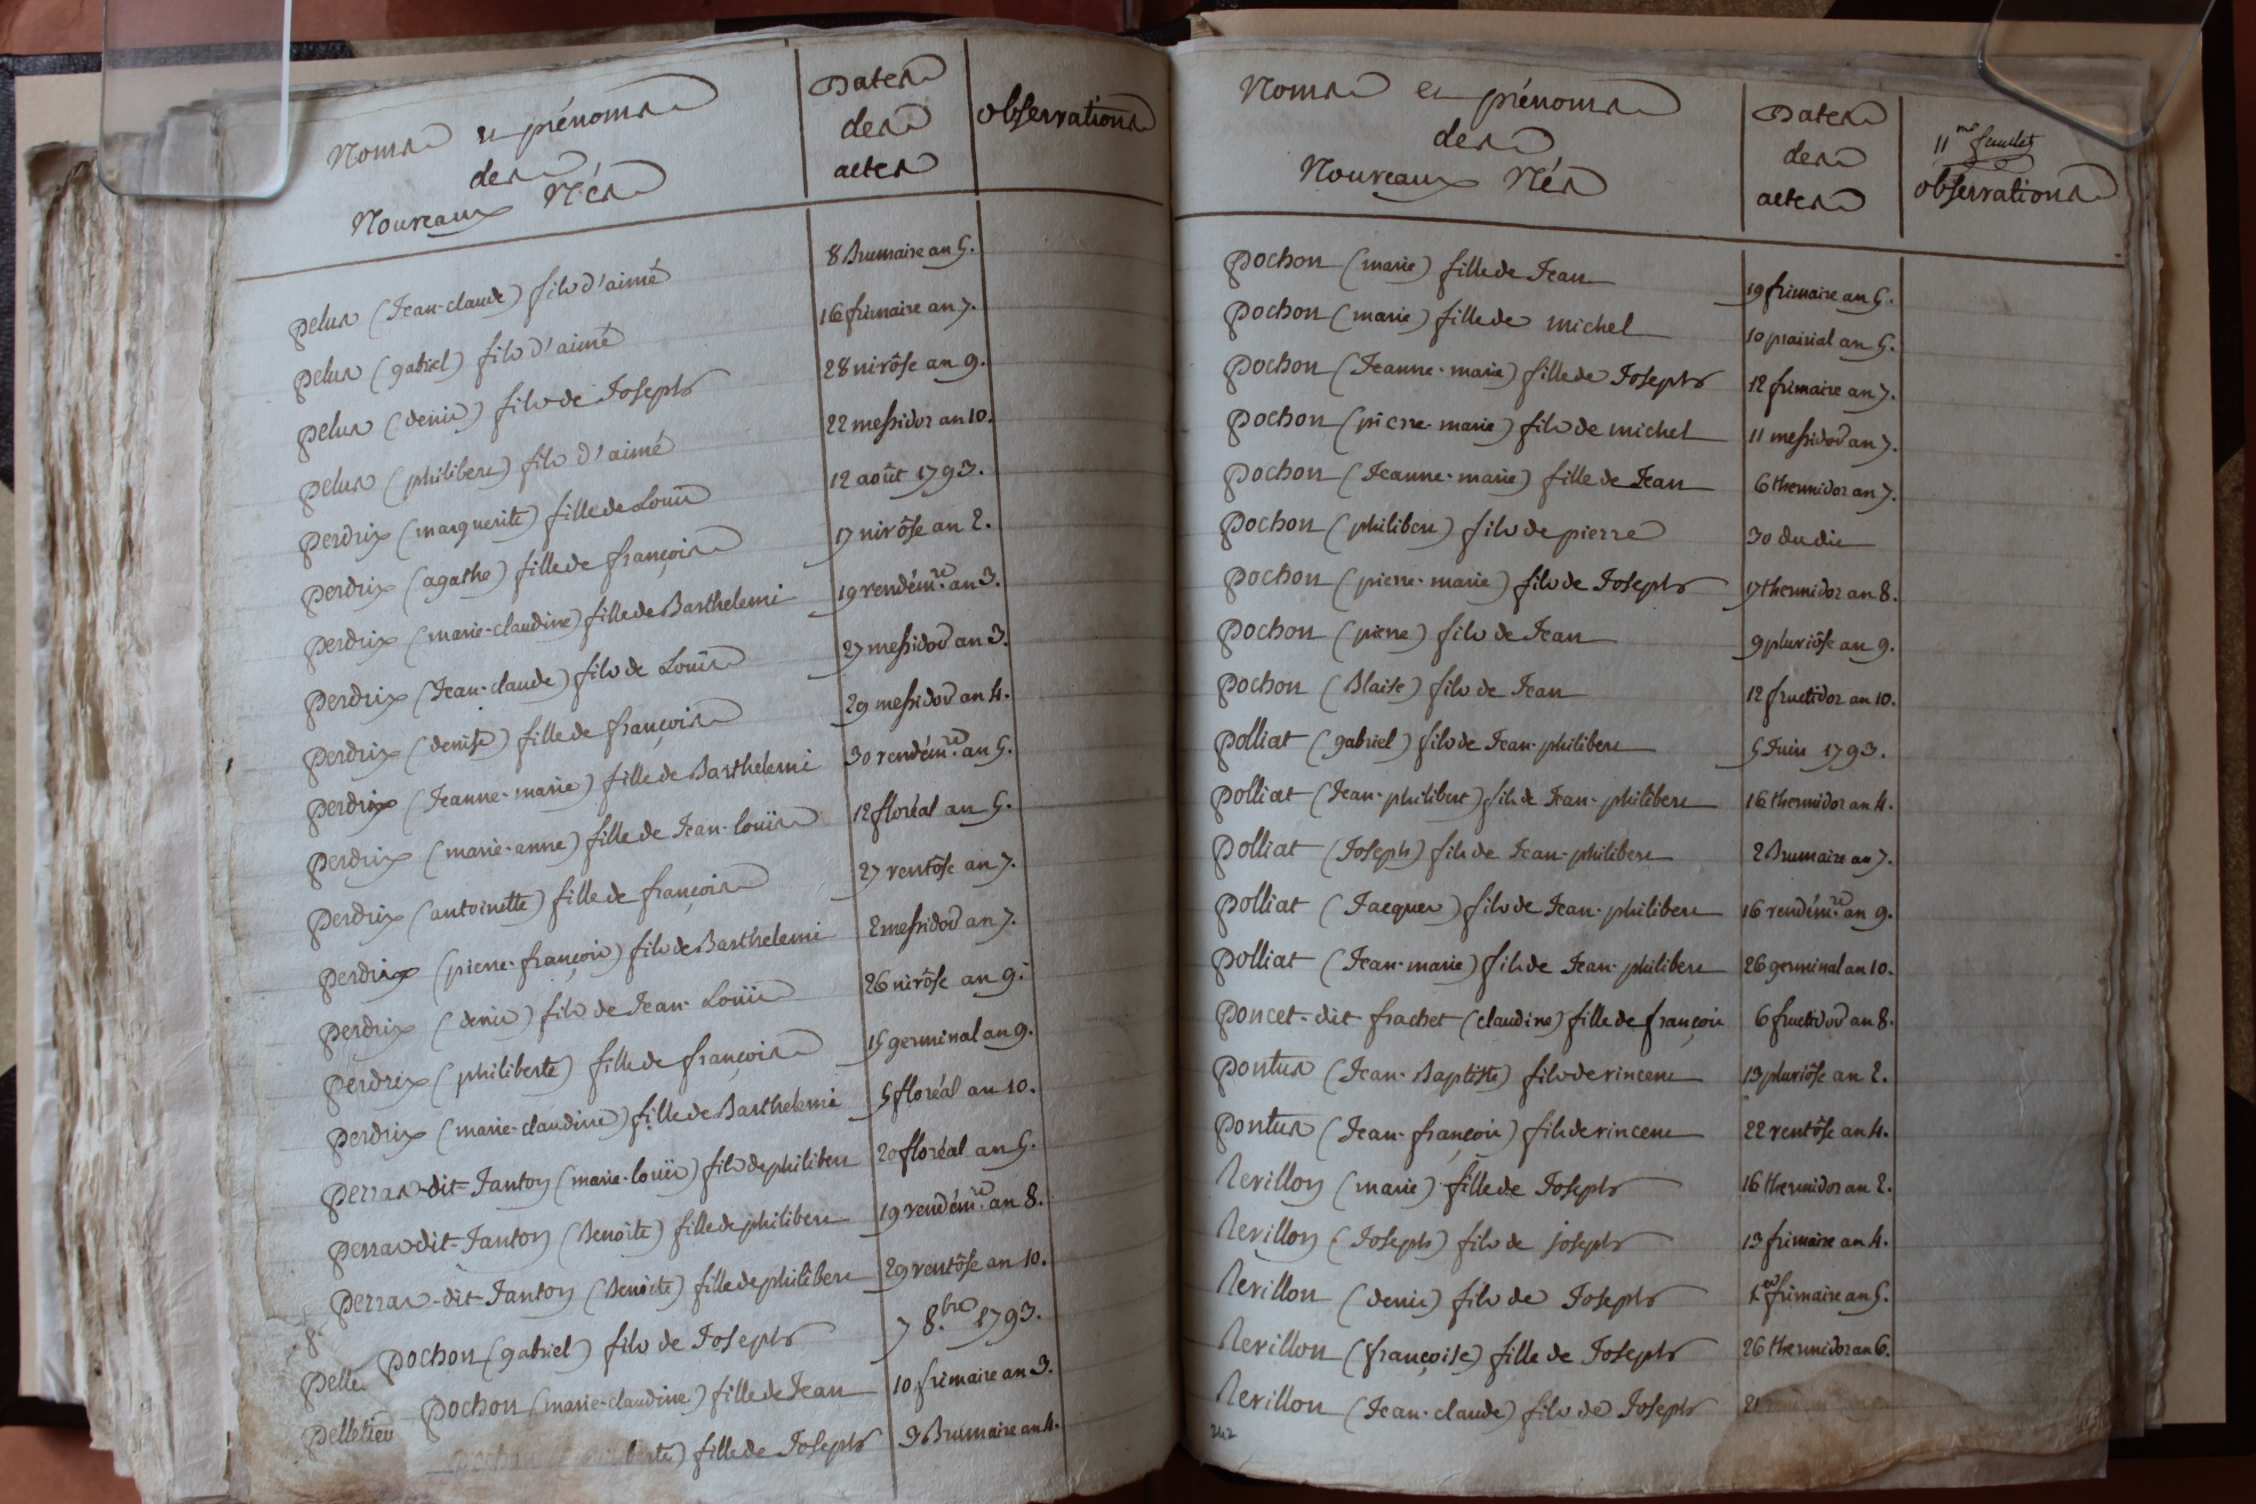 Noms et prénoms
des
Nouveaux Nés
Dates
des
actes
observations
pelus (Jean-claude) fils d'aimé 8 Brumaire an 5.
pelus (gabriel) fils d'aimé 16 frimaire an 7.
pelus (denis) fils de Joseph 28 nivôse an 9.
pelus (philibert) fils d'aimé 22 messidor an 10.
perdrix (marguerite) fille de Louis 12 août 1793.
perdrix (agathe) fille de françois 17 nivôse an 2.
perdrix (marie-claudine) fille de Barthelemi 19 vendém.re an 3.
perdrix (Jean-claude) fils de Louis 27 messidor an 3.
perdrix (denise) fille de françois 29 messidor an 4.
perdrix (Jeanne-marie) fille de Barthelemi 30 vendém.re an 5.
perdrix (marie-anne) fille de Jean-louis 12 floréal an 5.
perdrix (antoinette) fille de françois 27 ventôse an 7.
perdrix (pierre-françois) fils de Barthelemi 2 messidor an 7.
perdrix (denis) fils de Jean-Louis 26 nivôse an 9.
perdrix (philiberte) fille de françois 15 germinal an 9.
perdrix (marie-claudine) fille de Barthelemi 5 floréal an 10.
perras-dit-Janton (marie-louis) fils de philibert 20 floréal an 5.
perras-dit-Janton (Benoite) fille de philibert 19 vendém.re an 8.
perras-dit-Janton (Benoite) fille de philibert 29 ventôse an 10.
pochon (gabriel) fils de Joseph 7 8.bre 1793.
pelle
pochon (marie-claudine) fille de Jean 10 frimaire an 3.
pelletier
pochon berte) fille de Joseph 9 Brumaire an 4.
Noms et prénoms
des
Nouveaux Nés
Dates
des
actes
11.me feuillet
observations
pochon (marie) fille de Jean 19 frimaire an 5.
pochon (marie) fille de michel 10 prairial an 5.
pochon (Jeanne-marie) fille de Joseph 12 frimaire an 7.
pochon (pierre-marie) fils de michel 11 messidor an 7.
pochon (Jeanne-marie) fille de Jean 6 thermidor an 7.
pochon (philibert) fils de pierre 30 du dit
pochon (pierre-marie) fils de Joseph 17 thermidor an 8.
pochon (pierre) fils de Jean 9 pluviôse an 9.
pochon (Blaise) fils de Jean 12 fructidor an 10.
polliat (gabriel) fils de Jean-philibert 5 Juin 1793.
polliat (Jean-philibert) fils de Jean-philibert 16 thermidor an 4.
polliat (Joseph) fils de Jean-philibert 2 Brumaire an 7.
polliat (Jacques) fils de Jean-philibert 16 vendém.re an 9.
polliat (Jean-marie) fils de Jean-philibert 26 germinal an 10.
poncet-dit-frachet (claudine) fille de françois 6 fructidor an 8.
pontus (Jean-Baptiste) fils de vincent 13 pluviôse an 2.
pontus (Jean-françois) fils de vincent 22 ventôse an 4.
Revillon (marie) fille de Joseph 16 thermidor an 2.
Revillon (Joseph) fils de joseph 13 frimaire an 4.
Revillon (denis) fils de Joseph 1.er frimaire an 5.
Revillon (françoise) fille de Joseph 26 thermidor an 6.
Revillon (Jean-claude) fils de Joseph 21
242